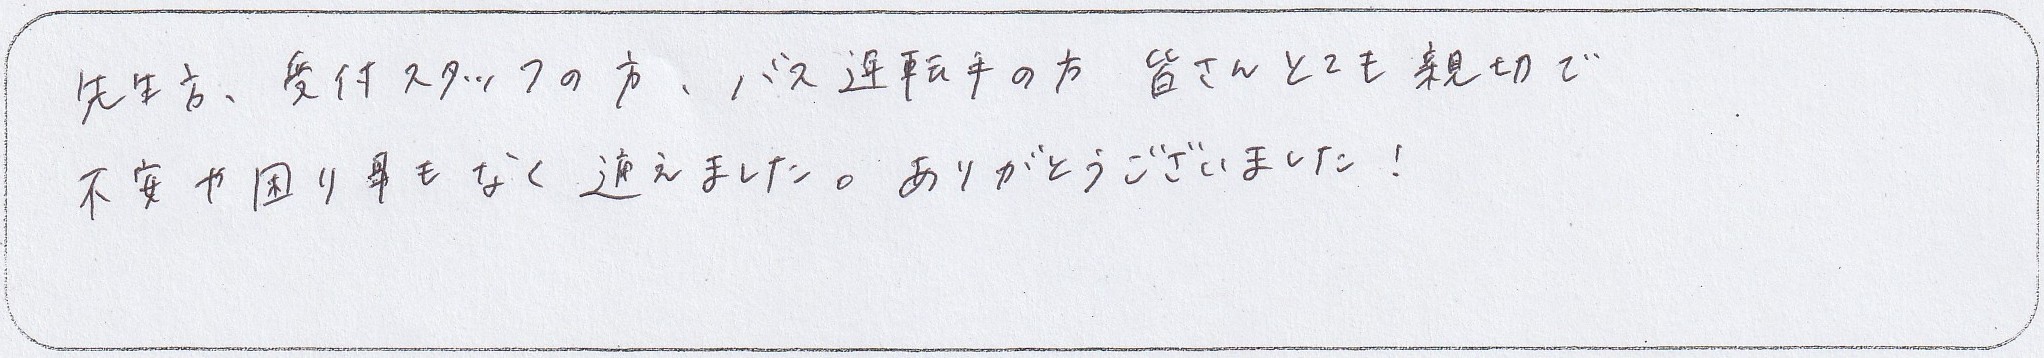 先生方、受付スタッフの方、バス運転手の方 皆さんとても親切で
不安や困り事もなく通えました。ありがとうございました！